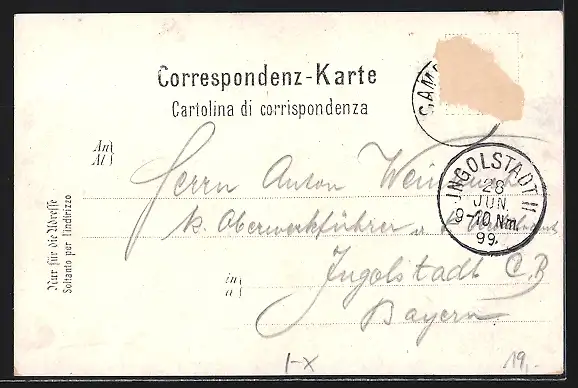 Correspondenz-Karte
Cartolina di corrispondenza
An
Al
Herrn Anton
k. Oberwerkführer
in
a
Ingolstadt C.B
Bayern
Nur für die Adresse
Soltanto per l'indirizzo
INGOLSTADT II
28
JUN.
9-10 Nm.
99.
I-X
19,-